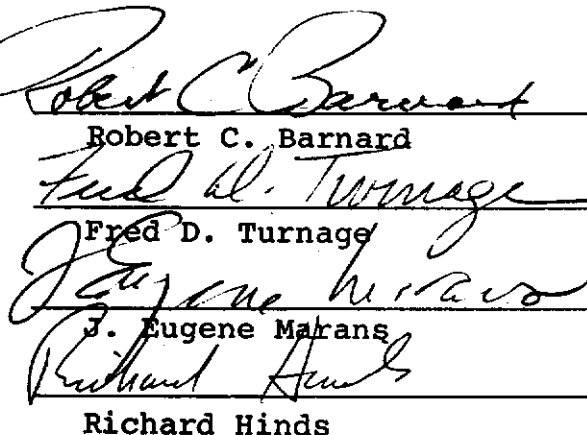 Robert C Barnard
Robert C. Barnard
Fred D. Turnage
Fred D. Turnage
J. Eugene Marans
J. Eugene Marans
Richard Hinds
Richard Hinds